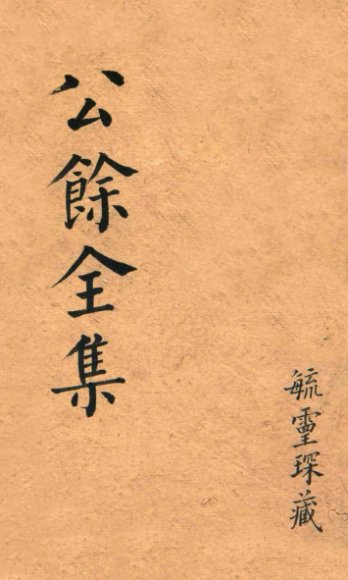 公餘全集
毓靈琛藏